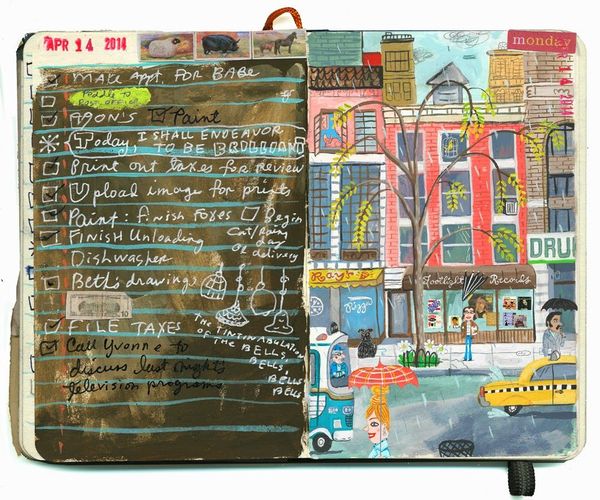 APR 14 2014
Make Appt. FOR BABE
PACKAGE TO
POST OFFICE
AGON'S Paint
Today, I SHALL ENDEAVOR
TO BE BRILLIANT
Print out taxes for review
Upload image for print
Paint: finish foxes Begin
Cat/rainy
day
or delivery
Finish Unloading
Dishwasher
Beth's drawing
10
FILE TAXES
Call Yvonne to
discuss last night's
television programs
THE TINTINABULATION
OF THE BELLS,
BELLS,
BELLS
BELLS
monday
DRUG
Ray's
Pizza
Footlight Records